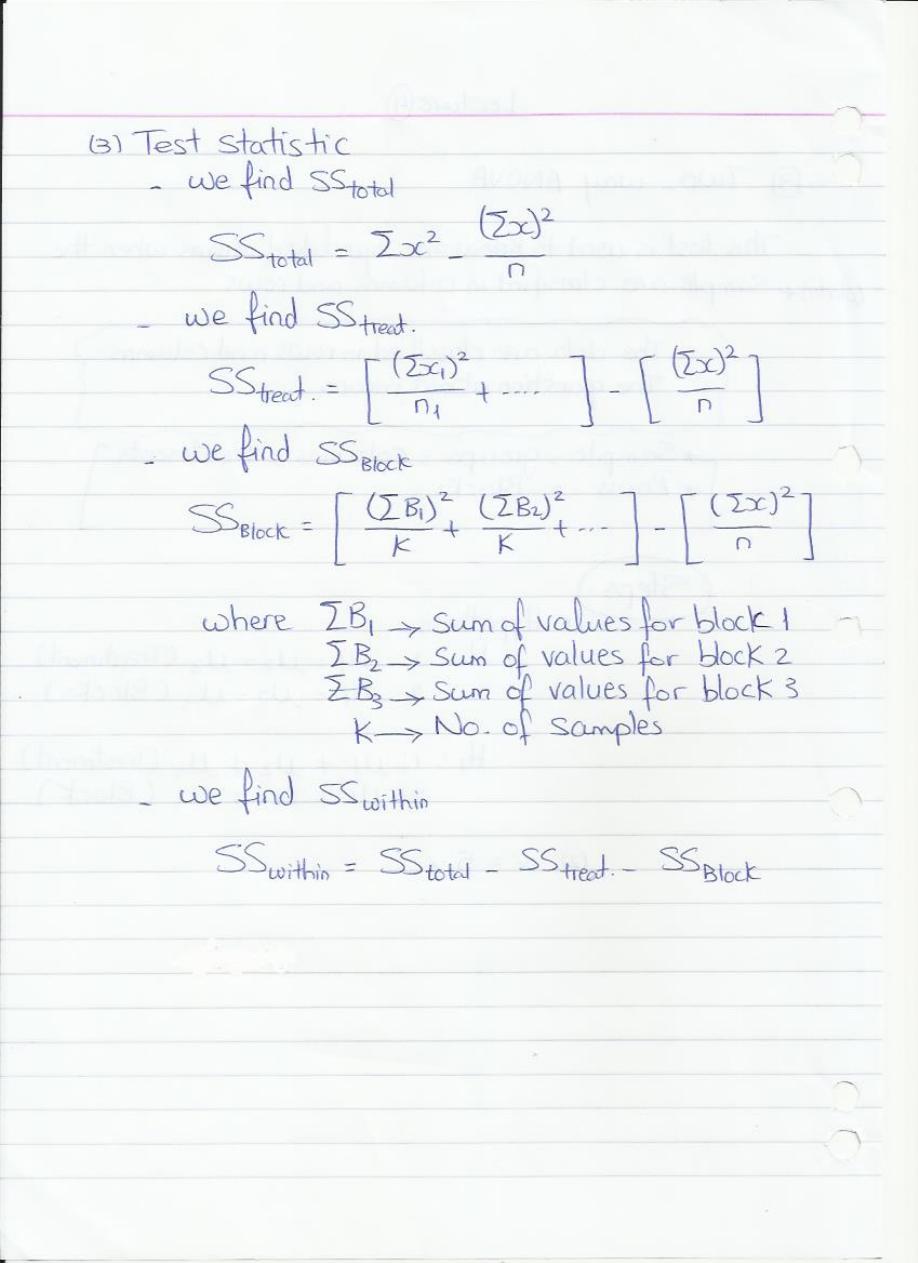 (3) Test statistic
- we find SS total
SS total = Σx² - (Σx)² / n
- we find SS treat.
SS treat. = [ (Σx₁)² / n₁ + .... ] - [ (Σx)² / n ]
- we find SS Block
SS Block = [ (ΣB₁)² / K + (ΣB₂)² / K + ... ] - [ (Σx)² / n ]
where ΣB₁ → Sum of values for block 1
ΣB₂ → Sum of values for block 2
ΣB₃ → Sum of values for block 3
K → No. of Samples
- we find SS within
SS within = SS total - SS treat. - SS Block